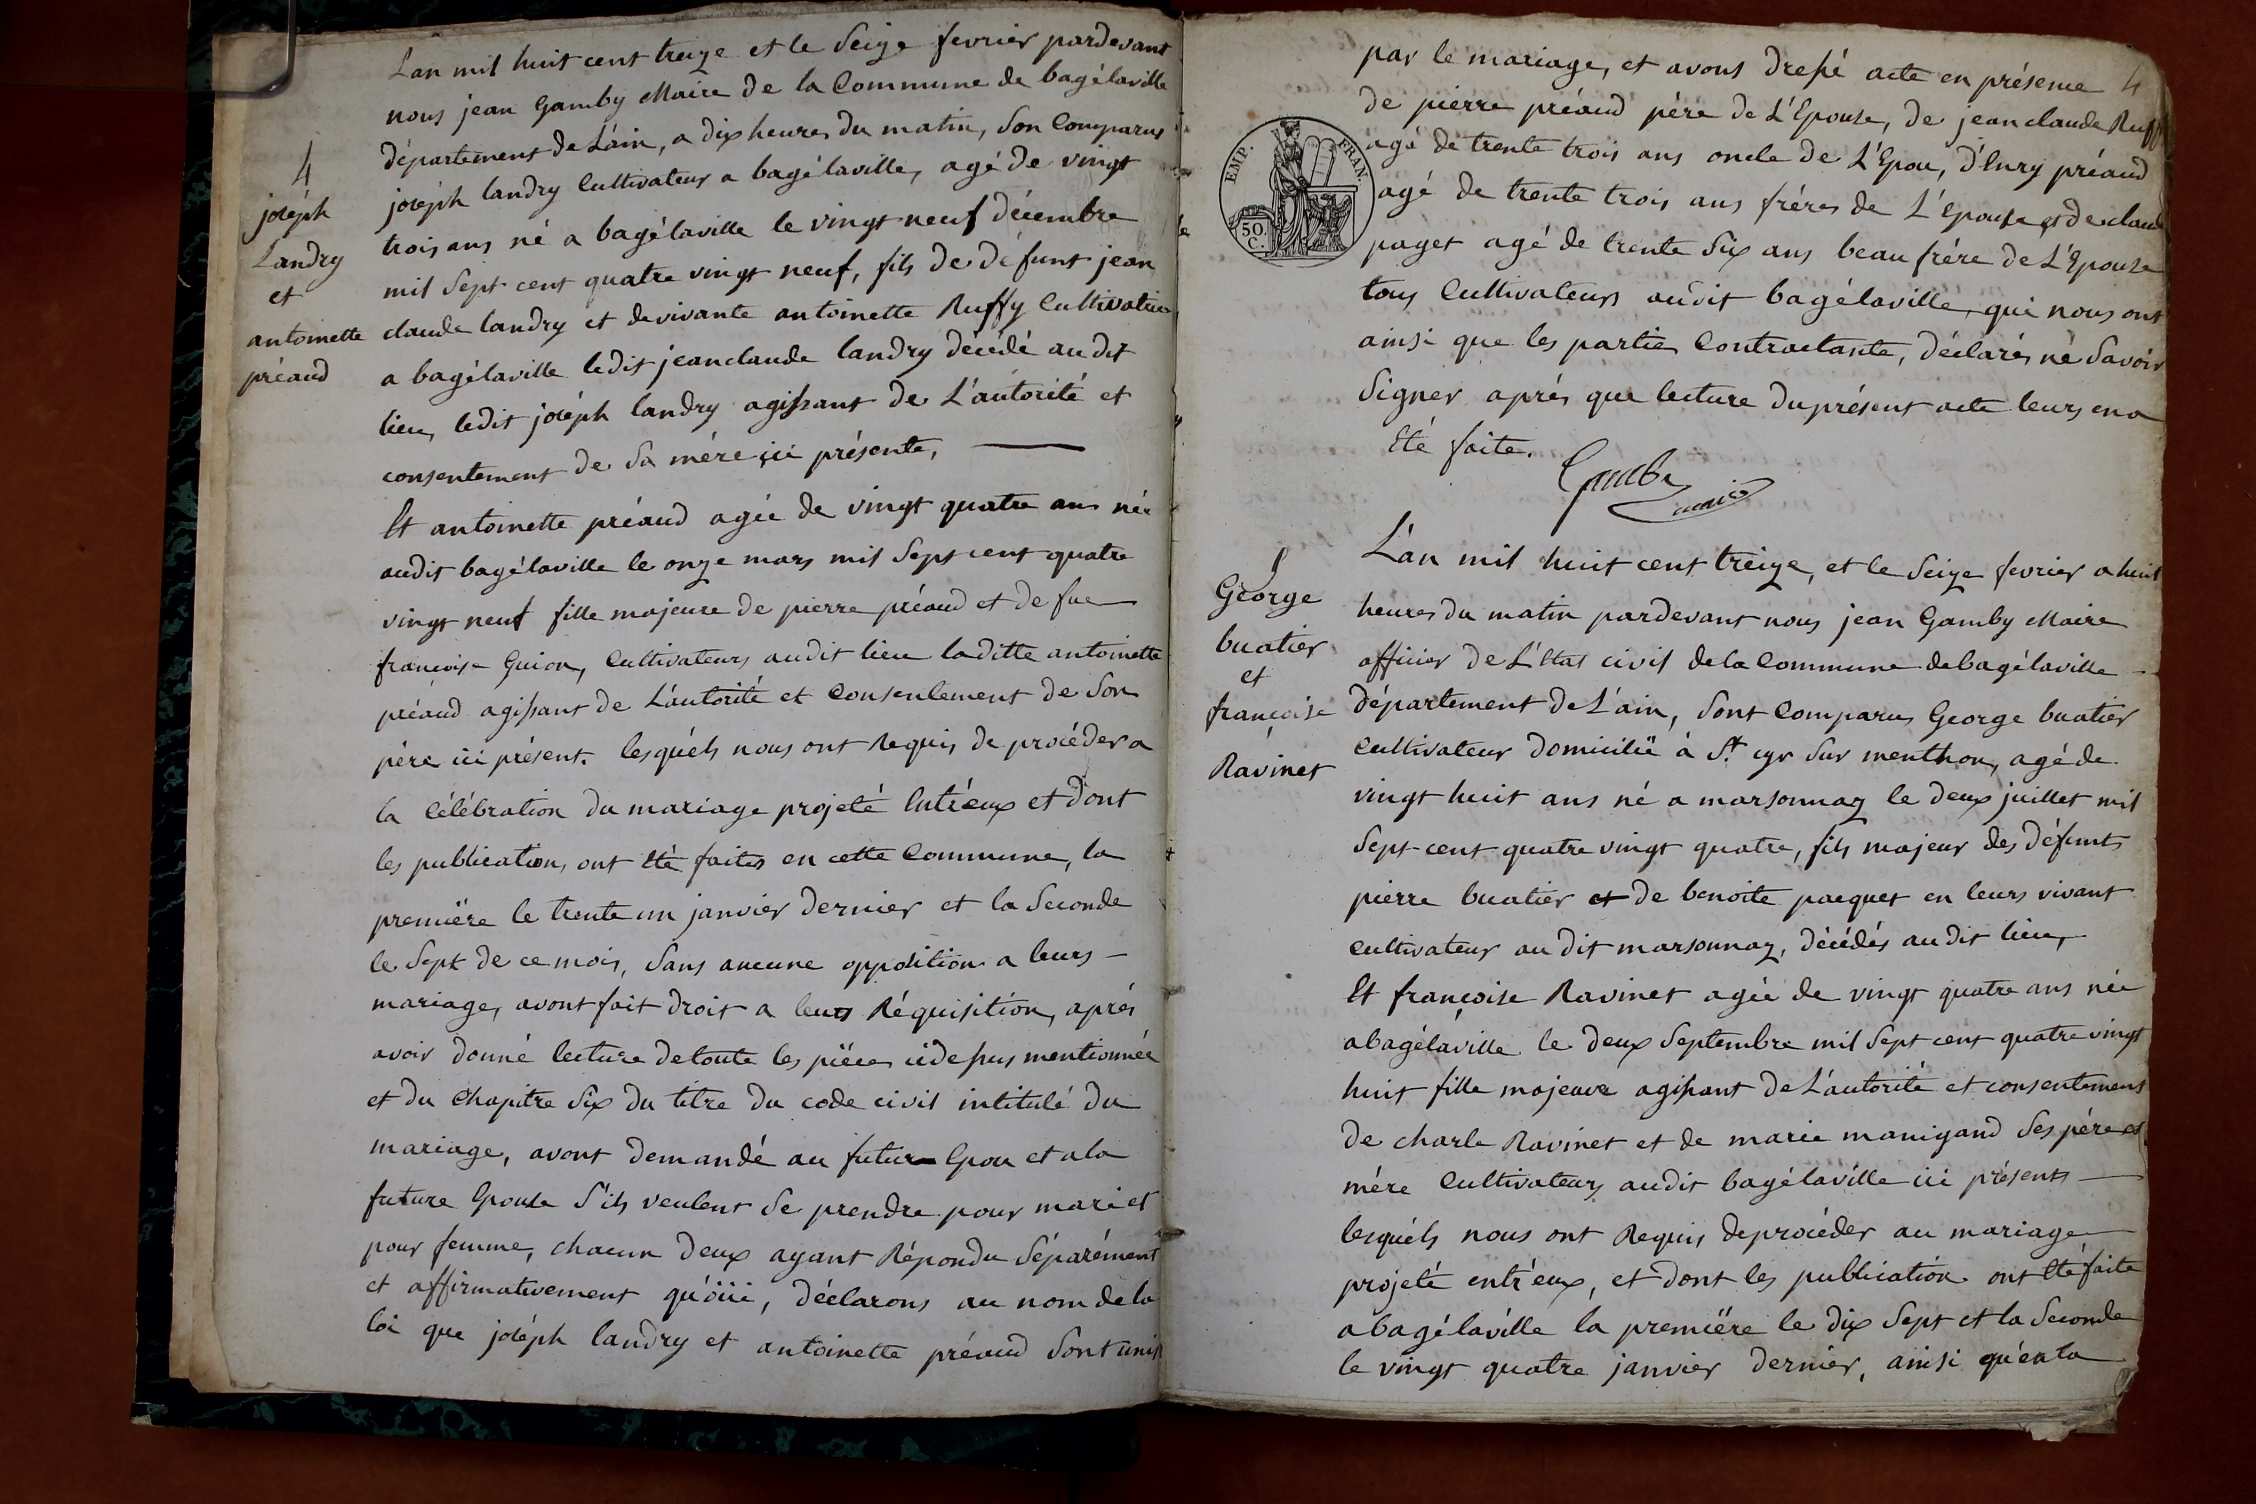 4
joséph
Landry
et
antoinette
préaud
Lan mil huit cent treize et le Seize fevrier pardevant
nous jean Gamby Maire de la Commune de bagélaville
département de L'ain, a dix heures du matin, Son Comparus
joséph landry Cultivateur a bagélaville, agé de vingt
trois ans né a bagélaville le vingt neuf décembre
mil Sept cent quatre vingt neuf, fils de défunt jean
claude landry et de vivante antoinette Ruffy Cultivatrice
a bagélaville ledit jean claude landry décédé au dit
lieu, ledit joséph landry agissant de L'autorité et
consentement de Sa mére ici présente,
Et antoinette préaud agée de vingt quatre ans née
audit bagélaville le onze mars mil Sept cent quatre
vingt neuf fille majeure de pierre préaud et de fue
francoise Guion, Cultivateurs audit lieu laditte antoinette
préaud agissant de L'autorité et Consentement de Son
pére ici présent. lesquéls nous ont Requis de procéder a
la Célébration du mariage projeté Entr'eux et dont
les publication, ont Eté faites en cette Commune, la
premiëre le trente un janvier dernier et la Seconde
le Sept de ce mois, Sans aucune opposition a leurs
mariage, avont fait droit a leurs Réquisition, aprés
avoir donné lecture de toute les piëce cidessus mentionnée
et du Chapitre Six du titre du code civil intitulé du
mariage, avont demandé au futur Epou et a la
future Epouse S'ils veulent Se prendre pour mari et
pour femme, chacun deux ayant Répondu Séparément
et affirmativement qu'öüi, déclarons au nom de la
loi que joséph landry et antoinette préaud Sont unis
par le mariage, et avons dressé acte en présence
4
de pierre préaud pére de L'Epouse, de jean claude Ruffy
agé de trente trois ans oncle de L'Epou, d'Enry préaud
agé de trente trois ans fréres de L'Epouse et de claude
paget agé de trente Six ans beau frére de L'Epouse
tous Cultivateurs au dit bagélaville, qui nous ont
ainsi que les partie Contractante, déclarés ne Savoir
Signer aprés que lecture du présent acte leurs en a
Eté faite.
EMP. FRAN.
50.
C.
Gamby
maire
5
George
buatier
et
françoise
Ravinet
L'an mil huit cent treize, et le Seize fevrier a huit
heures du matin pardevant nous jean Gamby Maire
officier de L'Etat civil de la Commune de bagélaville
département de L'ain, Sont Comparus George buatier
Cultivateur domicilië à St. cyr Sur menthon, agé de
vingt huit ans né a marsonnaz le deux juillet mil
Sept cent quatre vingt quatre, fils majeur des défunts
pierre buatier et de benoite pacquet en leurs vivant
Cultivateur au dit marsonnaz, décédés au dit lieu,
Et françoise Ravinet agée de vingt quatre ans née
a bagélaville le deux Septembre mil Sept cent quatre vingt
huit fille majeure agissant de L'autorité et consentement
de charle Ravinet et de marie manigand Ses pére et
mére Cultivateurs audit bagélaville ici présents
lesquéls nous ont Requis de procéder au mariage
projeté entr'eux, et dont les publication ont Eté faite
a bagélaville la premiëre le dix Sept et la Seconde
le vingt quatre janvier dernier, ainsi qu'en la